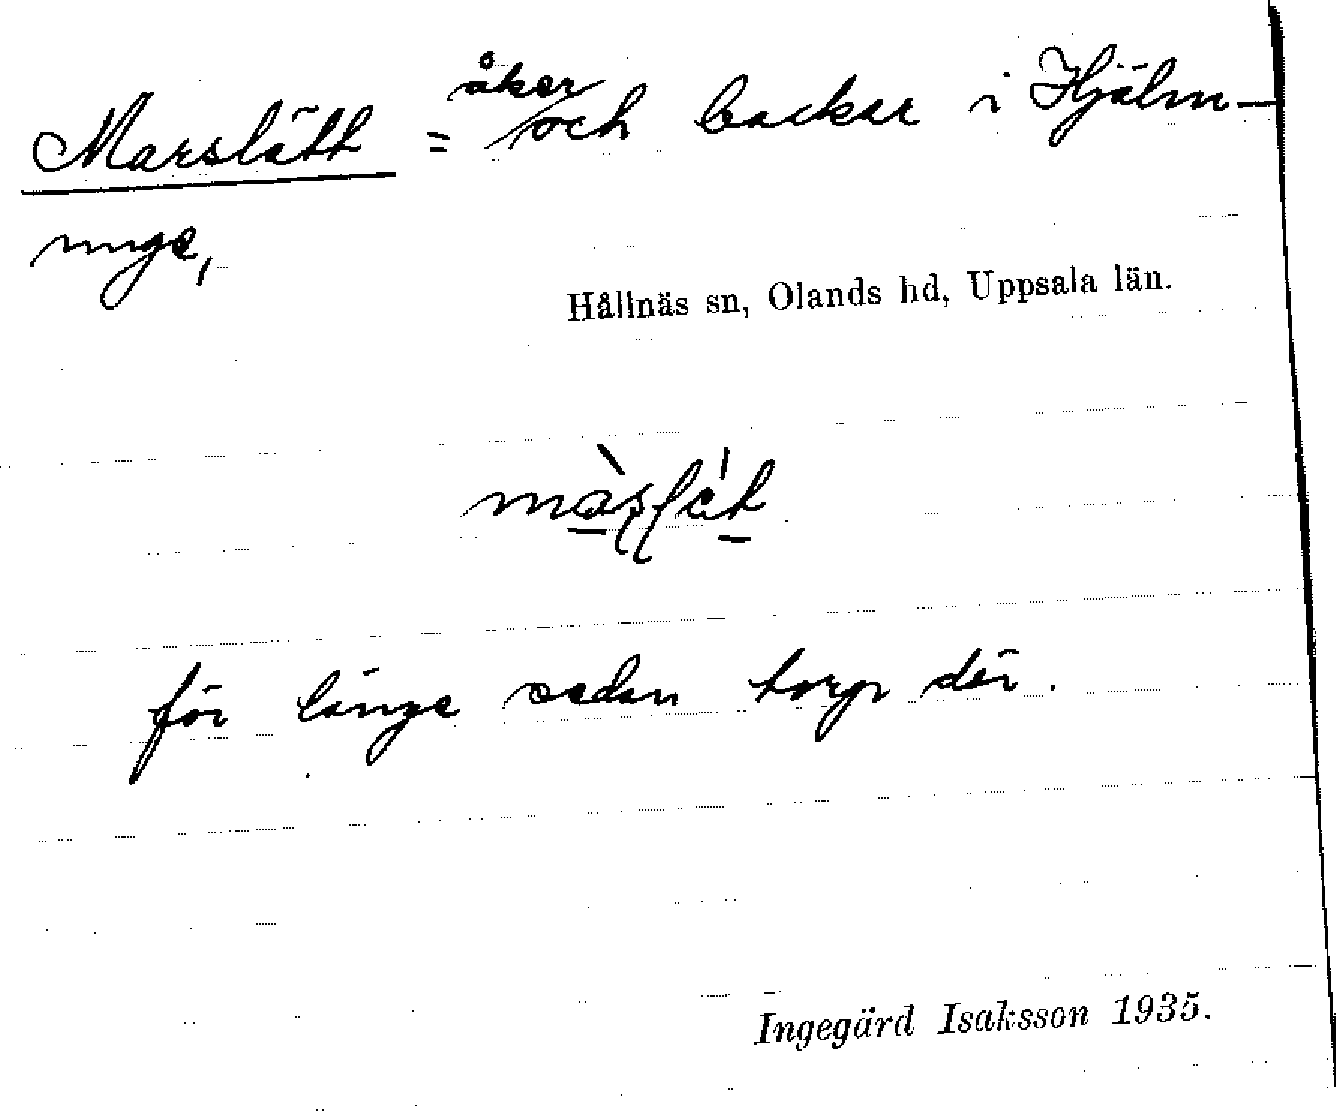 Marslätt = åker och backar i Hjälm-
unge,
Hållnäs sn, Olands hd, Uppsala län.
för länge sedan torp där.
Ingegärd Isaksson 1935.